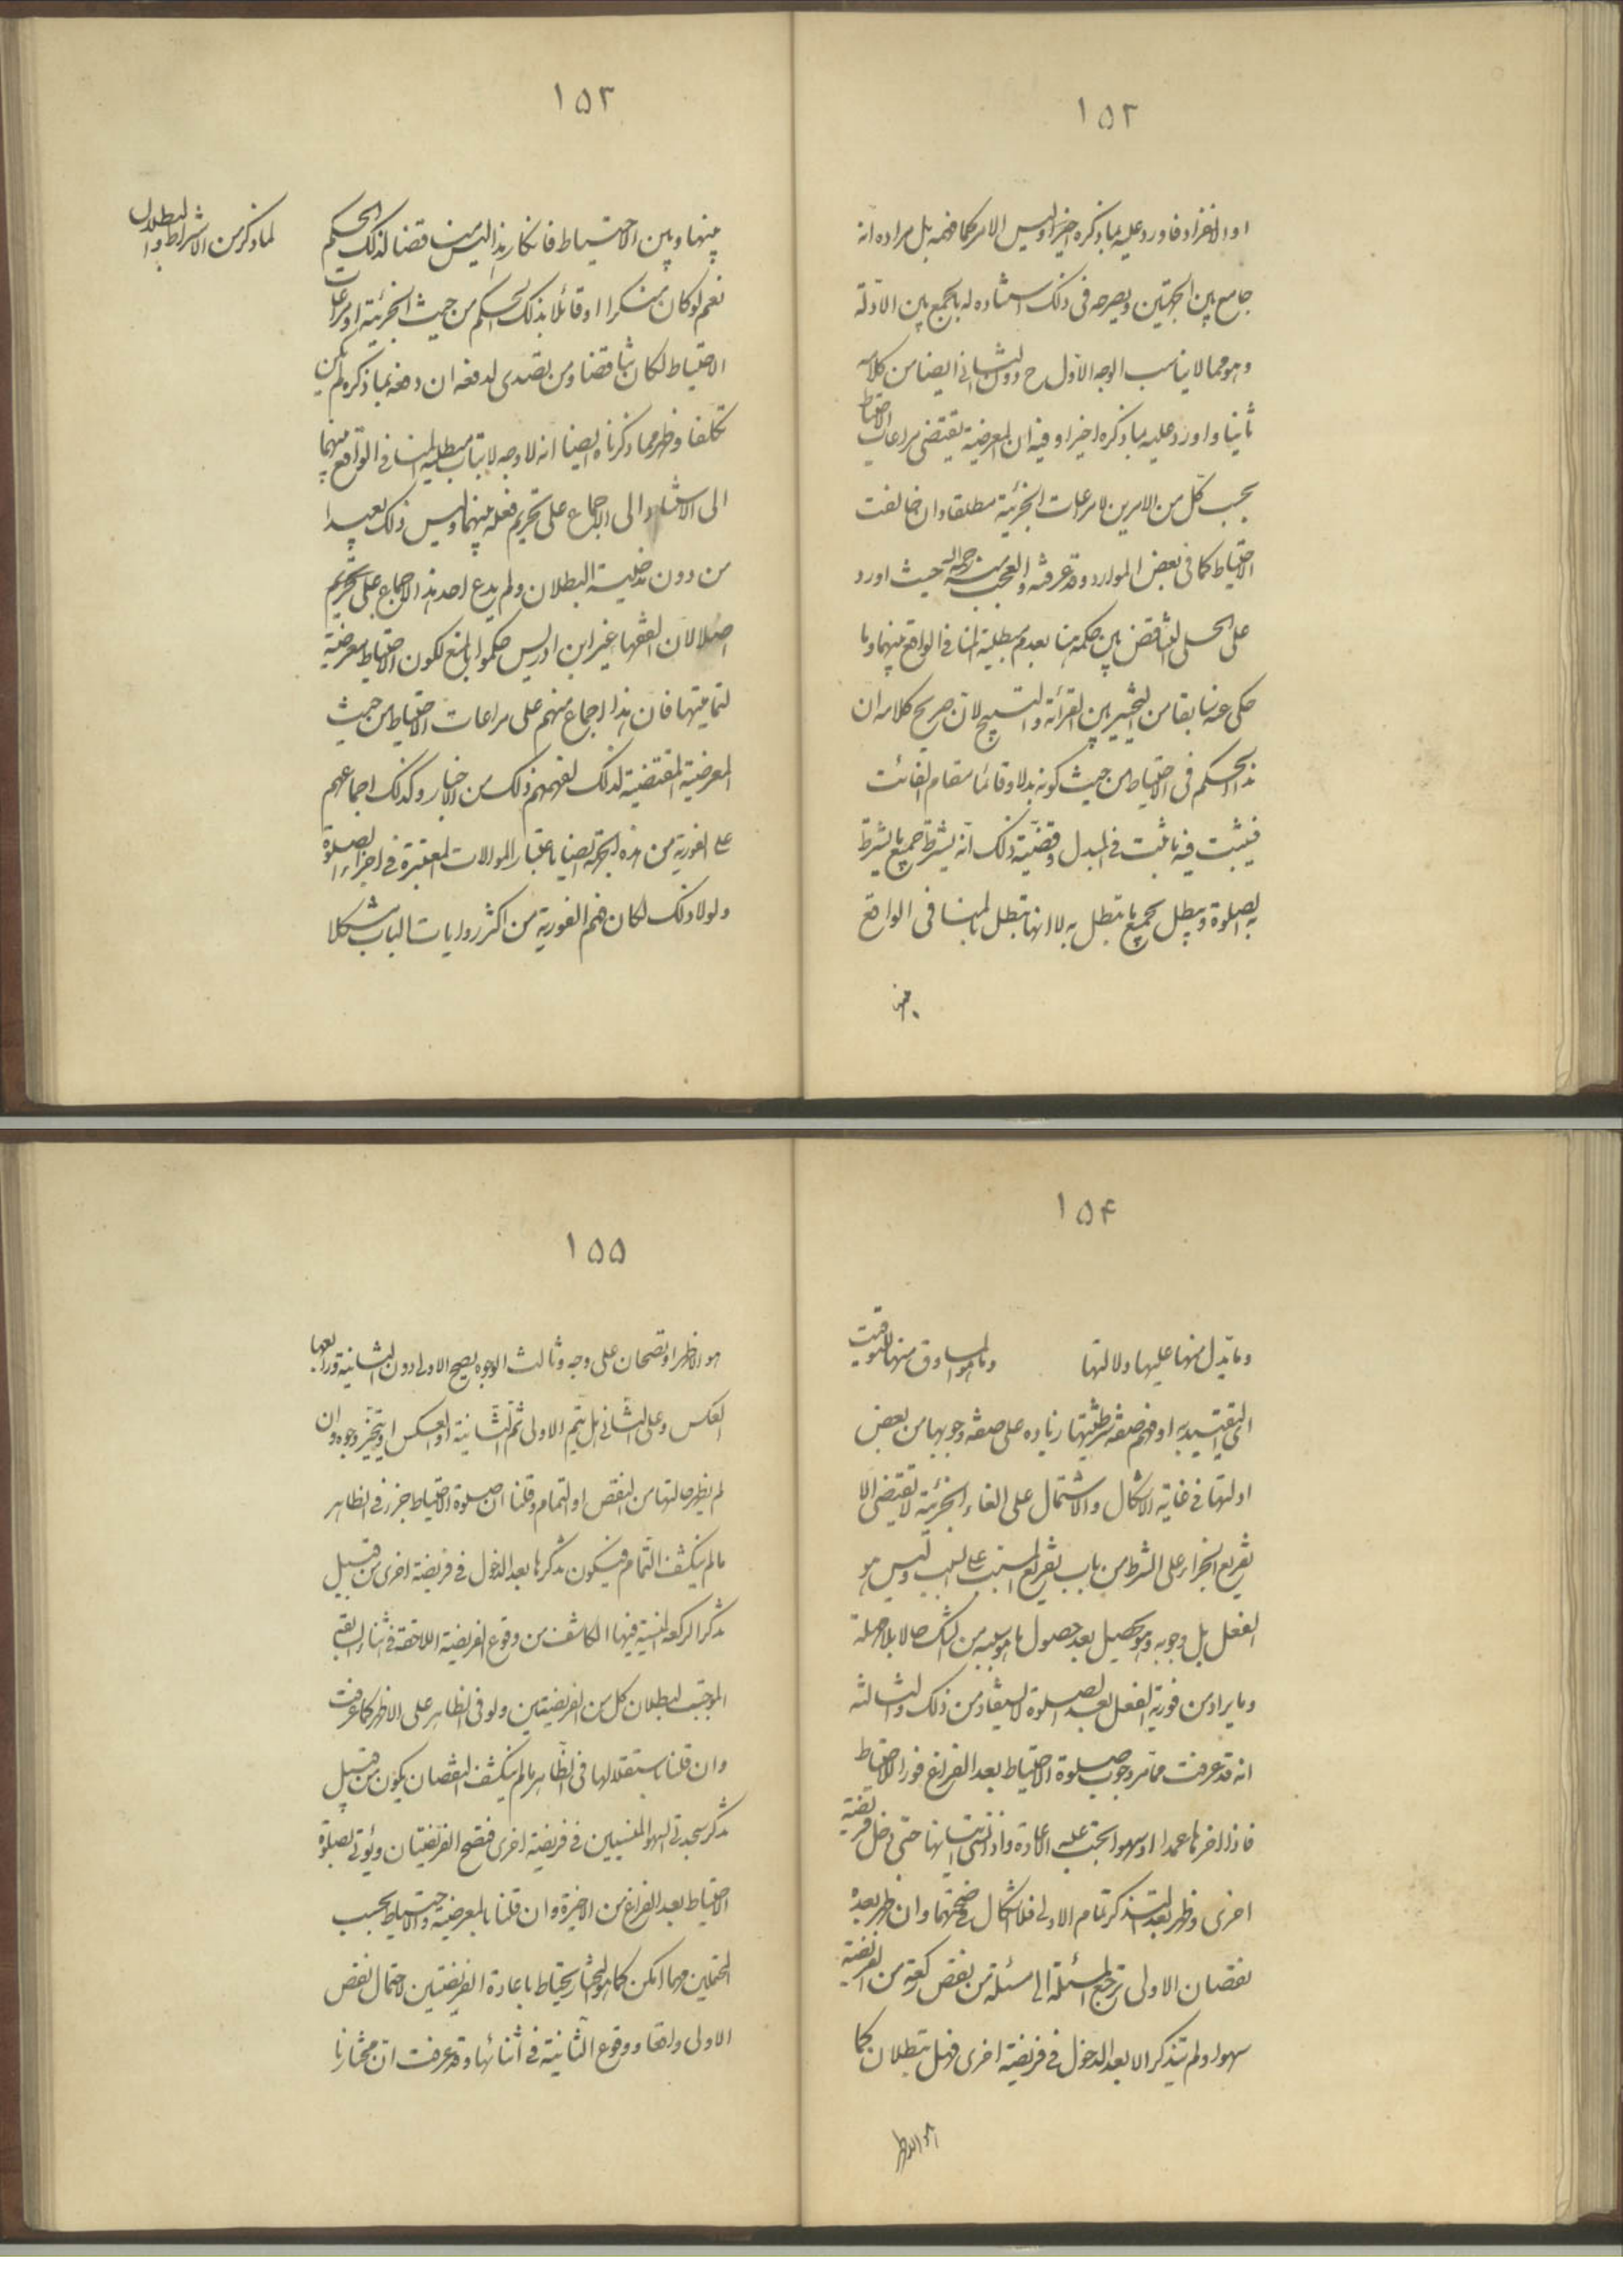 ١٥٢
او الانفراد فاورد عليه بما ذكره اخيرا وليس الامر كما فهمه بل مراده انه
جامع بين الجهتين وبصرحه فى ذلك استناده له بالجمع بين الادلة
وهو مما لا يناسب الوجه الاول ح دون الثانى ايضا من كلامه
ثانيا واورد عليه بما ذكره اخيرا وفيه ان المعرضية تقتضى مراعات الاحتياط
بحسب كل من الامرين لا مراعات الجزئية مطلقا وان خالفت
الاحتياط كما فى بعض الموارد وقد عرفته والعجب منه رحمه الله حيث اورد
على الحلى التناقض بين حكمه هنا بعدم مبطلية المنافى الواقع بينهما وما
حكى عنه سابقا من التخيير بين القرائة والتسبيح لان صريح كلامه ان
هذا الحكم فى الاحتياط من حيث كونه بدلا وقائما مقام الفائت
فيثبت فيه ما ثبت فى المبدل وقضية ذلك انه يشترط جميع ما يشترط
به الصلوة ويبطل بجميع ما تبطل به لا انها تبطل بالمنافى الواقع
بينها
١٥٣
بينها وبين الاحتياط فانكار هذا ليس مناقضا لذلك الحكم
لما ذكر من الاشتراط والبطلان
نعم لو كان منكرا او قائلا بذلك الحكم من حيث الجزئية او مراعات
الاحتياط لكان مناقضا ومن تصدى لدفعه ان دفعه بما ذكره لم يكن
تكلفا وظهر مما ذكرناه ايضا انه لا وجه لاثبات مبطلية المنافى الواقع بينهما
الى الاستناد الى الاجماع على تحريم فعله بينهما وليس ذلك بعيدا
من دون مدخلية البطلان ولم يدع احد هذا الاجماع على تحريم
اصلا لان الفقهاء غير ابن ادريس حكموا بالمنع لكون الاحتياط معرضية
لتماميتها فان هذا اجماع منهم على مراعات الاحتياط من حيث
المعرضية المقتضية لذلك لفهمهم ذلك من الاخبار وكذلك اجماعهم
على الفورية من هذه الجهة ايضا باعتبار الموالات المعتبرة فى اجزاء الصلوة
ولولا ذلك لكان فهم الفورية من اكثر روايات الباب مشكلا
١٥٤
وما يدل منها عليها ولالتها وما للمساوق منها للتوقيت
التقييد به او فهم صفة شرطيتها زيادة على صفة وجوبها من بعض
ادلتها فى غاية الاشكال والاشتمال على الفاء الجزئية لا تقتضى الا
تفريع الجزاء على الشرط من باب تفريع المسبب على السبب وليس هو
الفعل بل وجوبه وهو يحصل بعد حصول ما هو سببه من الشك حالا بلا مهلة
وما يراد من فورية الفعل بعد الصلوة لا يستفاد من ذلك والثالثة
انه قد عرفت مما مر وجوب صلوة الاحتياط بعد الفراغ فورا للاحتياط
فاذا اخرها عمدا او سهوا يجب عليه الاعادة واذا نسى اتيانها حتى دخل فريضة
اخرى وظهر بعد التذكر تمام الاولى فلا اشكال فى صحتهما وان ظهر بعده
نقصان الاولى ترجع المسئلة الى مسئلة من نقص ركعة من الفريضة
سهوا ولم يتذكر الا بعد الدخول فى فريضة اخرى فهل تبطلان كما
هو الاظهر
١٥٥
هو الاظهر او تصحان على وجه وثالث الوجوه يصح الاولى دون الثانية ورابعها
العكس وعلى الثانى هل يتم الاولى ثم الثانية او العكس او يتخير وجوه وان
لم يظهر حالتها من النقص او التمام وقلنا ان صلوة الاحتياط جزء فى الظاهر
ما لم ينكشف التمام فيكون تذكرها بعد الدخول فى فريضة اخرى من قبيل
تذكر الركعة المنسية فيها الكاشف من وقوع الفريضة اللاحقة فى اثناء السابقة
الموجب لبطلان كل من الفريضتين ولو فى الظاهر على الاظهر كما عرفت
وان قلنا باستقلالها فى الظاهر ما لم ينكشف النقصان يكون من قبيل
تذكر سجدتى السهو المنسيين فى فريضة اخرى فتصح الفريضتان ويؤتى بصلوة
الاحتياط بعد الفراغ من الاخيرة وان قلنا بالمعرضية والاحتياط بحسب
المحتملين مهما امكن كما هو المختار يحتاط باعادة الفريضتين لاحتمال نقص
الاولى ووقوع الثانية فى اثنائها وقد عرفت ان مختارنا